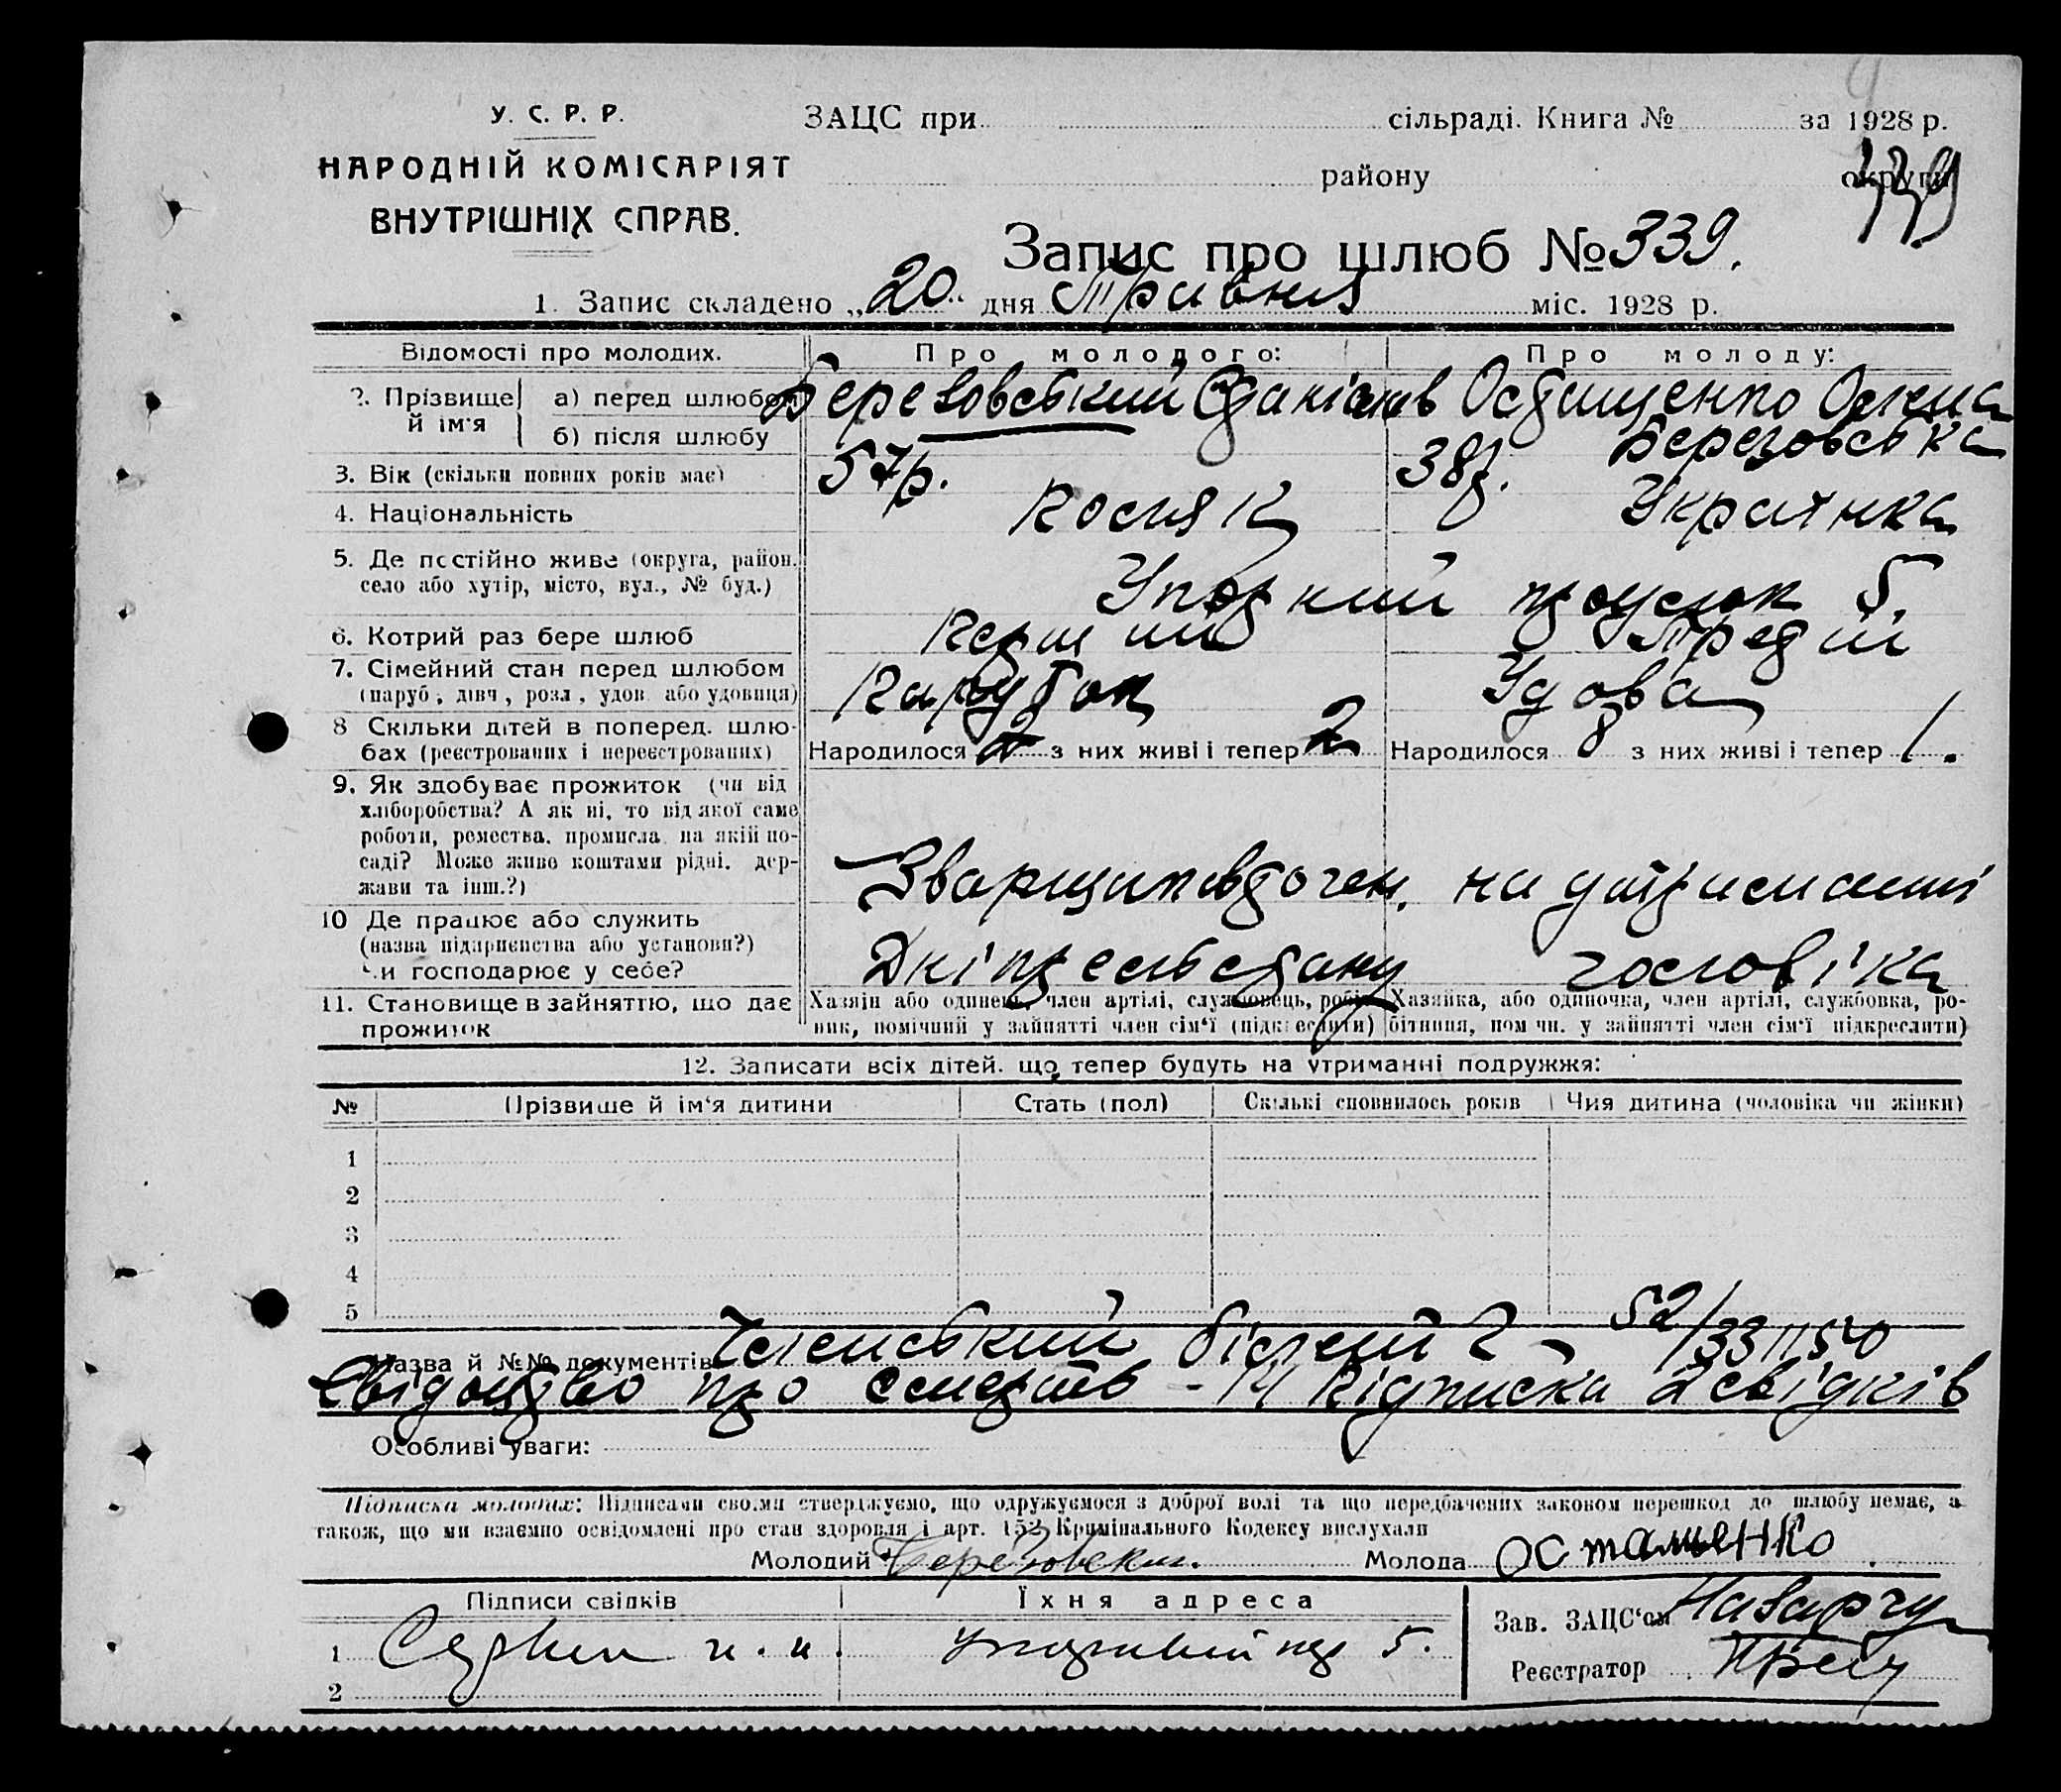 У. С. Р. Р.
НАРОДНІЙ КОМІСАРІЯТ
ВНУТРІШНІХ СПРАВ.
ЗАЦС при сільраді. Книга № за 1928 р.
району округи
339
Запис про шлюб № 339.
1. Запис складено „20“ дня Травня міс. 1928 р.
Відомості про молодих. Про молодого: Про молоду:
2. Прізвище й ім'я а) перед шлюбом Березовський Осташенко
б) після шлюбу Березовська
3. Вік (скільки повних років має) 57р. 38р.
4. Національність Поляк Украінка
5. Де постійно живе (округа, район, село або хутір, місто, вул., № буд.) 5.
6. Котрий раз бере шлюб Перший Третій
7. Сімейний стан перед шлюбом (паруб., дівч., розл., удов. або удовиця) Парубок Удова
8 Скільки дітей в поперед. шлюбах (реєстрованих і нереєстрованих) Народилося 2 з них живі і тепер 2 Народилося 8 з них живі і тепер 1.
9. Як здобуває прожиток (чи від хліборобства? А як ні, то від якої саме роботи, ремества, промисла, на якій посаді? Може живе коштами рідні, держави та інш.?) на утриманні
10 Де працює або служить (назва підприємства або установи?) Чи господарює у себе? чоловіка
11. Становище в зайняттю, що дає прожиток Хазяїн або одинець, член артілі, службовець, робітник, помічний у зайнятті член сім'ї (підкреслити) Хазяйка, або одиночка, член артілі, службовка, робітниця, помічн. у зайнятті член сім'ї підкреслити)
12. Записати всіх дітей, що тепер будуть на утриманні подружжя:
№ Прізвище й ім'я дитини Стать (пол) Скількі сповнилось років Чия дитина (чоловіка чи жінки)
1
2
3
4
5
Назва й №№ документів Членський білет 52/331150
Свідоцтво про смерть - 14 Підписка 2 свідків
Особливі уваги:
Підписка молодих: Підписами своїми стверджуємо, що одружуємося з доброї волі та що передбачених законом перешкод до шлюбу немає, а
також, що ми взаємно освідомлені про стан здоровля і арт. 153 Кримінального Кодексу вислухали
Молодий Молода Осташенко
Підписи свідків Їхня адреса Зав. ЗАЦС'ом
1 5.
Реєстратор
2